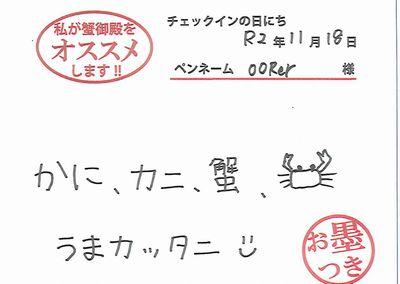 私が蟹御殿を
オススメ
します!!
チェックインの日にち
R2年11月18日
ペンネーム OORer 様
かに、カニ、蟹、
うまカッタニ
お墨
つき